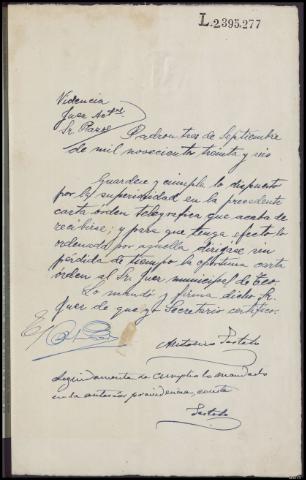 L.2395.277
Videncia
Juez Actal
Sr. Pazos
Padron tres de Septiembre
de mil novecientos treinta y seis
Guardese y cumpla lo dispuesto
por la superioridad en la precedente
carta orden telegrafica que acaba de
recibirse; y para que tenga efecto lo
ordenado por aquella dirijase sin
pérdida de tiempo la oportuna carta
orden al Sr. Juez municipal de Teo.
Lo mandó y firma dicho Sr.
Juez de que yo Secretario certifico.
Seguidamente se cumplio lo mandado
en la anterior providencia, conste